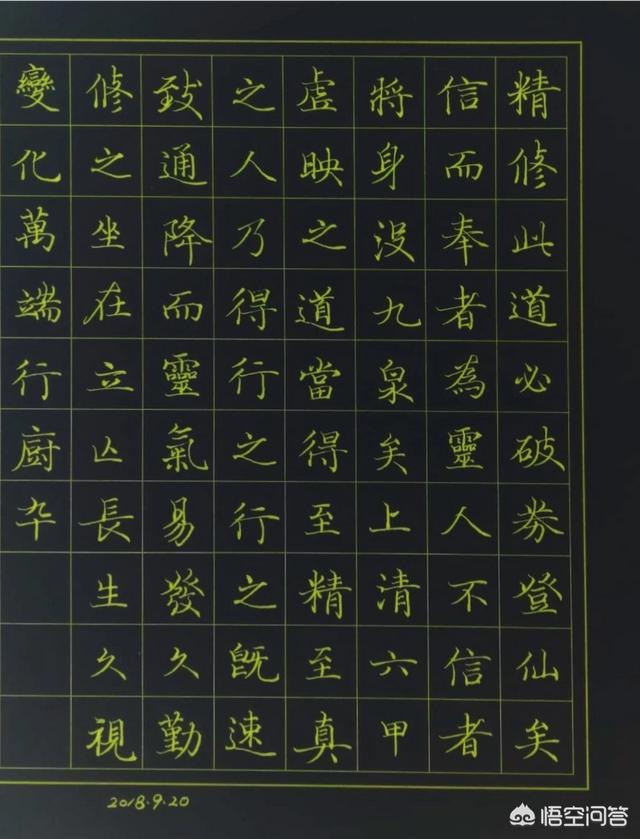 精修此道必破券登仙矣
信而奉者為靈人不信者
將身没九泉矣上清六甲
虛映之道當得至精至真
之人乃得行之行之既速
致通降而靈氣易發久勤
修之坐在立亡長生久視
變化萬端行廚卒
2018.9.20
悟空问答